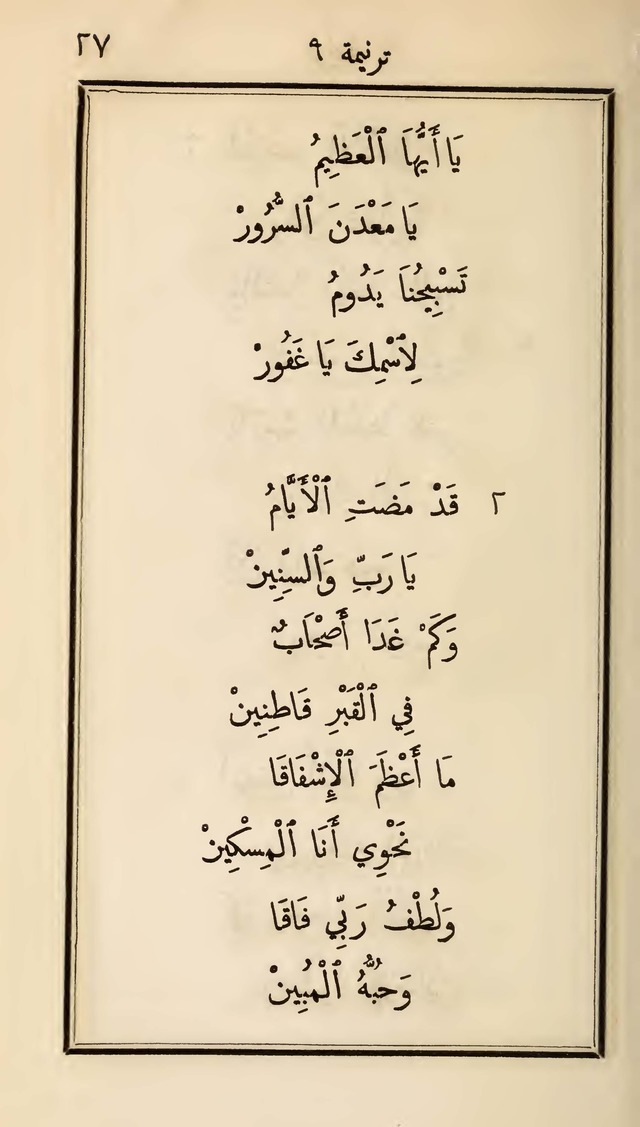 ترنيمة ٩ ٢٧
يَا أَيُّهَا ٱلْعَظِيمُ
يَا مَعْدَنَ ٱلسُّرُورْ
تَسْبِيحُنَا يَدُومُ
لِٱسْمِكَ يَا غَفُورْ
٢ قَدْ مَضَتِ ٱلْأَيَّامُ
يَا رَبِّ وَٱلسِّنِينْ
وَكَمْ غَدَا أَصْحَابٌ
فِي ٱلْقَبْرِ قَاطِنِينْ
مَا أَعْظَمَ ٱلْإِشْفَاقَا
نَحْوِي أَنَا ٱلْمِسْكِينْ
وَلُطْفُ رَبِّي فَاقَا
وَحُبُّهُ ٱلْمُبِينْ